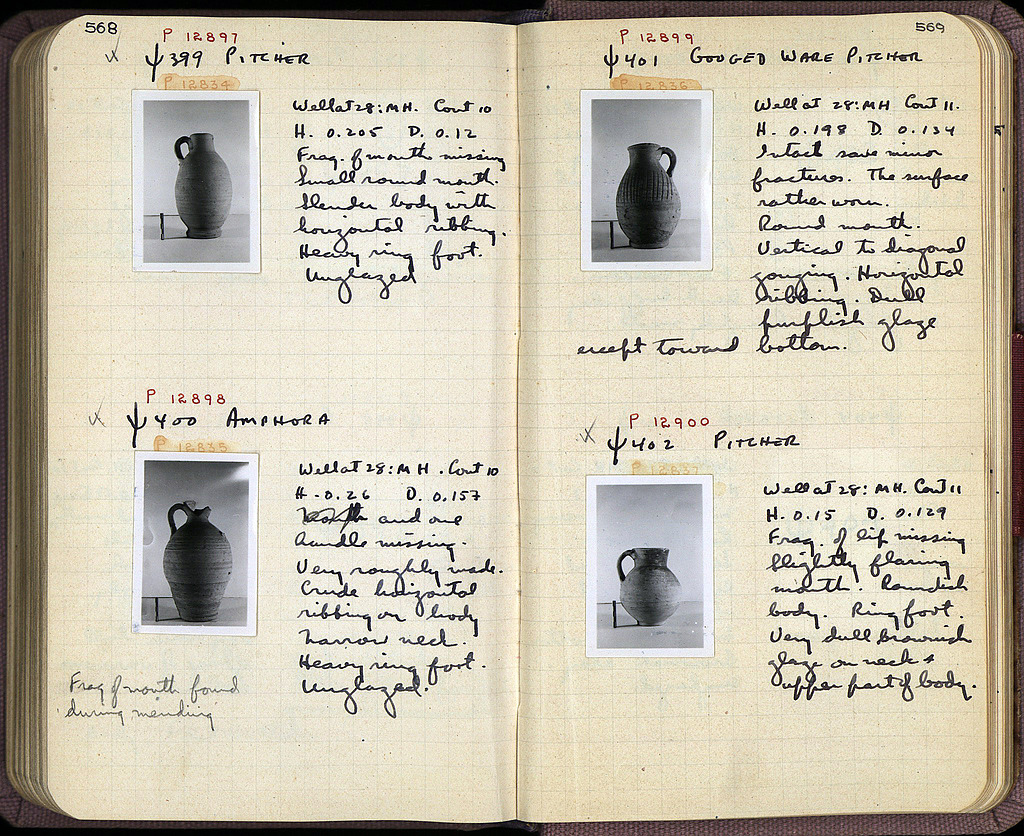 568
P 12897
ψ399 PITCHER
P 12834
Well at 28:MH. Cont 10
H. 0.205 D. 0.12
Frag. of mouth missing
Small round mouth.
Slender body with
horizontal ribbing.
Heavy ring foot.
Unglazed
P 12898
ψ400 AMPHORA
P 12835
Well at 28:MH. Cont 10
H. 0.26 D. 0.157
and one
handle missing.
Very roughly made.
Crude horizontal
ribbing on body
Narrow neck.
Heavy ring foot.
Unglazed.
Frag of mouth found
during mending
569
P 12899
ψ401 GOUGED WARE PITCHER
P 12836
Well at 28:MH Cont 11.
H. 0.198 D. 0.134
Intact save minor
fractures. The surface
rather worn.
Round mouth.
Vertical to diagonal
gouging. Horizontal
ribbing. Dull
purplish glaze
except toward bottom.
P 12900
ψ402 PITCHER
P 12837
Well at 28:MH. Cont 11
H. 0.15 D. 0.129
Frag. of lip missing
Slightly flaring
mouth. Roundish
body. Ring foot.
Very dull brownish
glaze on neck &
upper part of body.